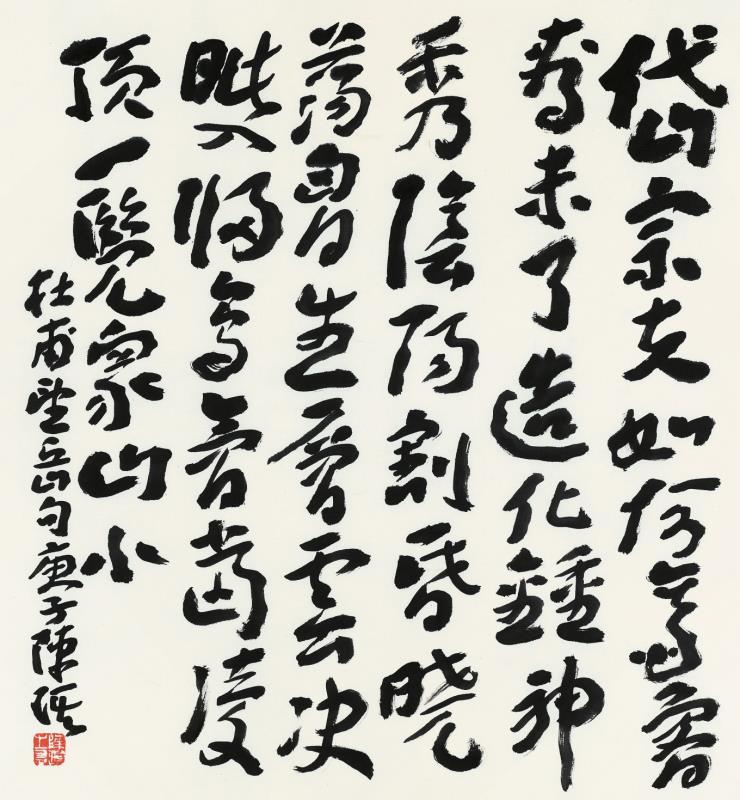 岱宗夫如何齊魯
青未了造化鍾神
秀陰陽割昏晓
蕩胷生層雲决
眦入歸鳥會當凌
頂一覽衆山小
杜甫望岳句庚子陳